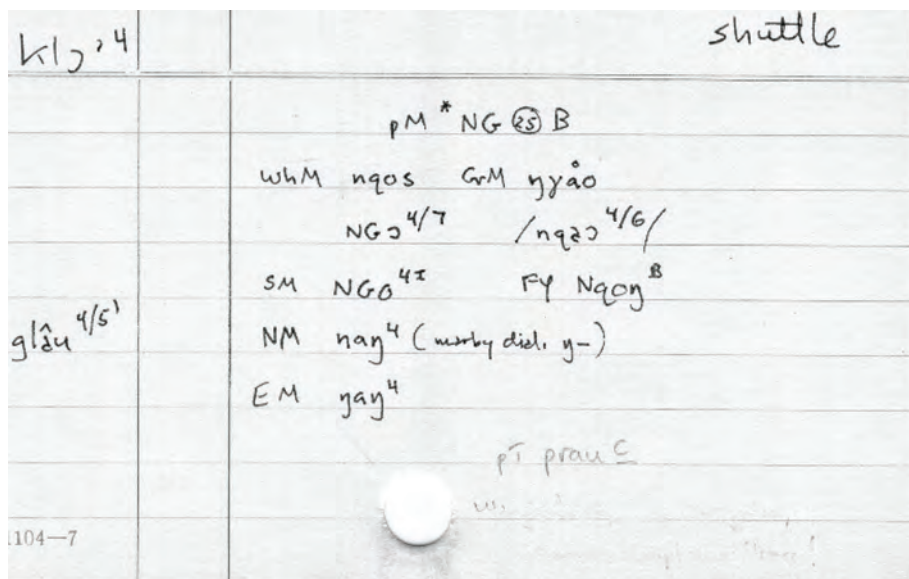 klɔ:⁴ shuttle
pM *NG ㉕ B
WhM nqos GrM ŋɣåo
NGɔ⁴/⁷ /nqɜɔ⁴/⁶/
SM NGo⁴ᴵ FY Nqoŋᴮ
glâu⁴/⁵' NM naŋ⁴ ( dial. ŋ-)
EM ŋaŋ⁴
pT prau C
1104—7